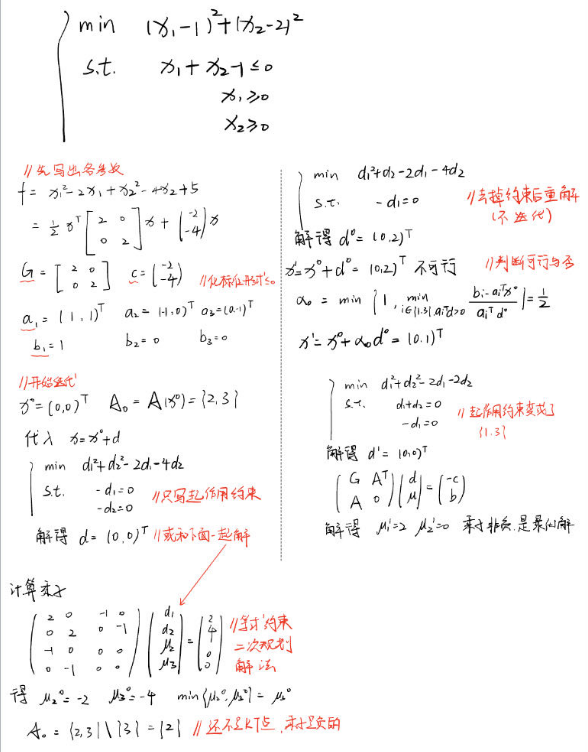 min (x₁-1)²+(x₂-2)²
s.t. x₁+x₂-1≤0
x₁≥0
x₂≥0
//先写出各参数
f = x₁²-2x₁+x₂²-4x₂+5
= ½ xᵀ [2 0; 0 2] x + (-2; -4) x
G = [2 0; 0 2] c = (-2; -4) //化标准形式≤
a₁ = (1,1)ᵀ a₂ = (-1,0)ᵀ a₃ = (0,-1)ᵀ
b₁=1 b₂=0 b₃=0
//开始迭代
x⁰=(0,0)ᵀ A₀ = A(x⁰)={2,3}
代入 x=x⁰+d
min d₁²+d₂²-2d₁-4d₂
s.t. -d₁=0
-d₂=0 //只写起作用约束
解得 d = (0,0)ᵀ //或和下面一起解
计算乘子
(2 0 -1 0; 0 2 0 -1; -1 0 0 0; 0 -1 0 0) (d₁; d₂; μ₂; μ₃) = (2; 4; 0; 0) //等式约束
二次规划
解法
得 μ₂⁰=-2 μ₃⁰=-4 min{μ₂⁰,μ₃⁰} = μ₃⁰
A₀ = {2,3}\{3} = {2} //还不是KT点,乘子是负的
min d₁²+d₂-2d₁-4d₂
s.t. -d₁=0 //去掉约束后重解
(不迭代)
解得 d⁰=(0,2)ᵀ
x¹=x⁰+d⁰=(0,2)ᵀ 不可行 //判断可行与否
α₀ = min {1, min i∈{1,3},aᵢᵀd>0 (bᵢ-aᵢᵀx⁰)/(aᵢᵀd⁰)} = ½
x¹=x⁰+α₀d⁰=(0,1)ᵀ
min d₁²+d₂²-2d₁-2d₂
s.t. d₁+d₂=0
-d₁=0 //起作用约束变成了
{1,3}
解得 d¹=(0,0)ᵀ
(G Aᵀ; A 0) (d; μ) = (-c; b)
解得 μ₁¹=2 μ₂¹=0 乘子非负,是最优解